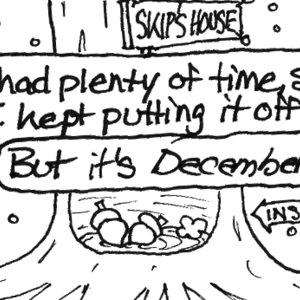 SKIP'S HOUSE
had plenty of time,
kept putting it off
But it's December
INS